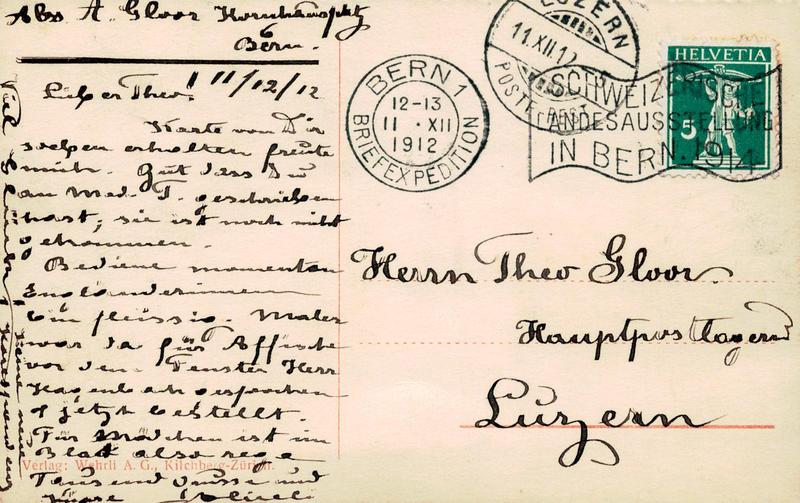 Abs. A. Gloor Kornhausplatz
Bern.
Lieber Theo! 11/12/12
Karte von Dir
selben erhalten freute
mich. Gut dass Du
an Med. T. geschrieben
hast, sie ist noch nicht
gekommen.
Bediene momentan
Engländerinnen
bin fleissig. Maler
war da für Affiche
vor dem Fenster Herr
Hagenbach gesprochen
& jetzt bestellt.
Für Mädchen ist im
Blatt also rege
Tausend Grüsse und
Küsse
Verlag: Wehrli A. G., Kilchberg-Zürich.
BERN 1
12-13
11 · XII
1912
BRIEFEXPEDITION
LUZERN
11.XII.12
POSTE REST.
HELVETIA
5
SCHWEIZERISCHE
LANDESAUSSTELLUNG
IN BERN. 1914
Herrn Theo Gloor.
Hauptpostlagernd
Luzern